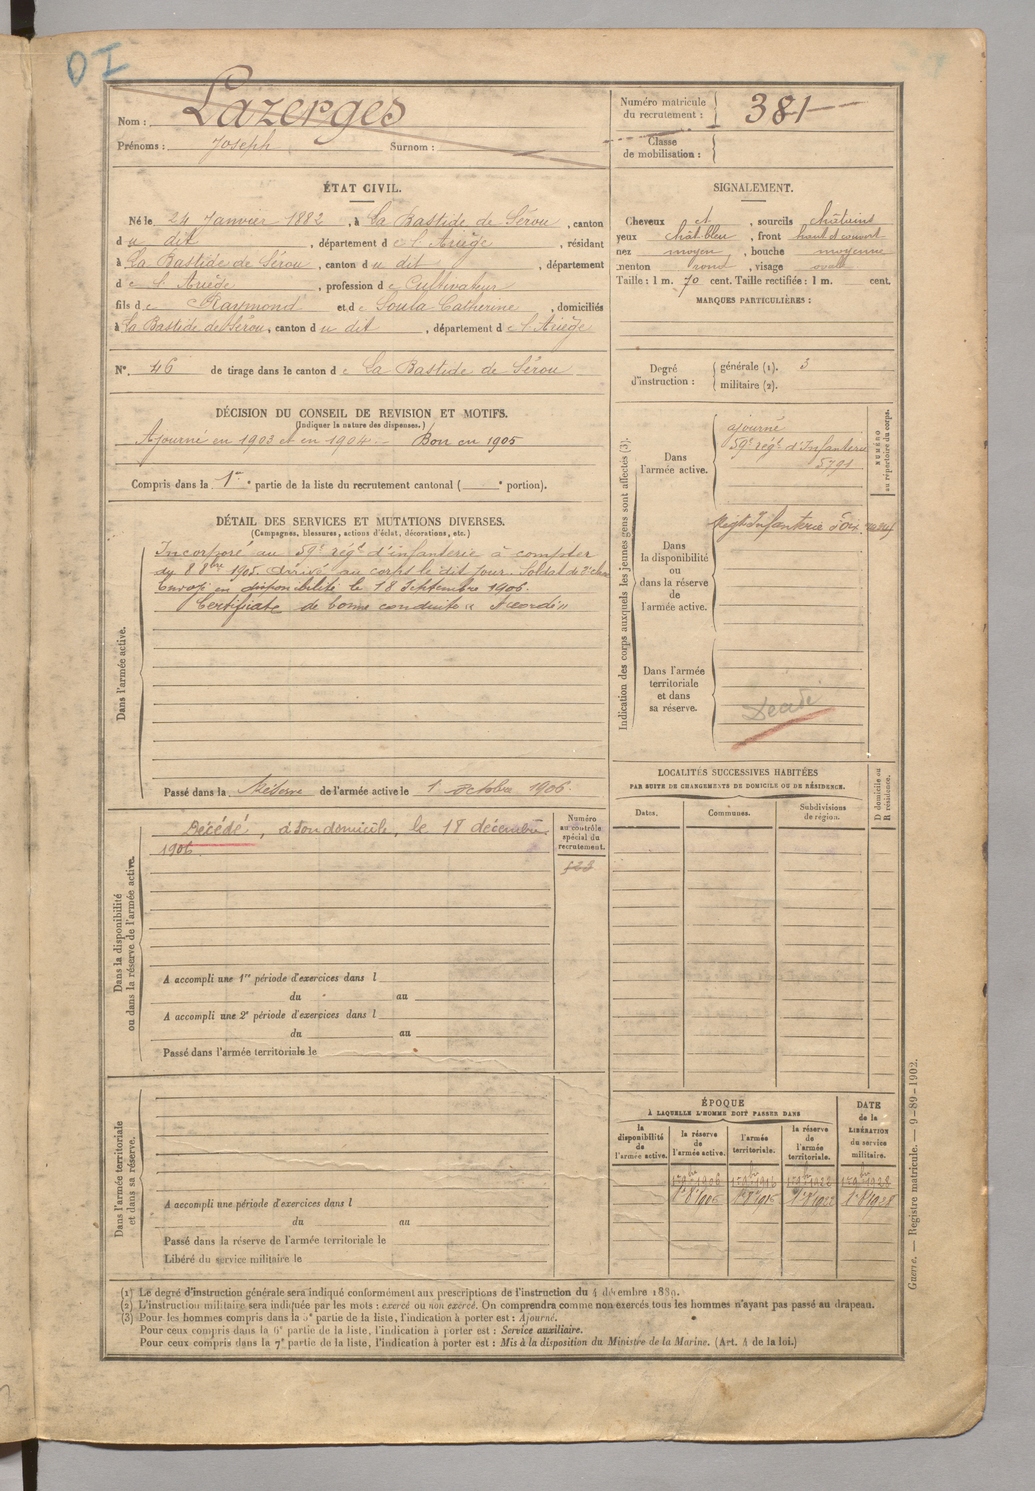 DI
Nom : Lazerges
Prénoms : Joseph Surnom :
Numéro matricule du recrutement : 381
Classe de mobilisation :
ÉTAT CIVIL.
Né le 24 Janvier 1882, à La Bastide de Sérou, canton
du dit, département de l'Ariège, résidant
à La Bastide de Sérou, canton du dit, département
de l'Ariège, profession de Cultivateur
fils de Raymond et de Soula Catherine, domiciliés
à La Bastide de Sérou, canton du dit, département de l'Ariège
N°. 46 de tirage dans le canton de La Bastide de Sérou
DÉCISION DU CONSEIL DE REVISION ET MOTIFS.
(Indiquer la nature des dispenses.)
Ajourné en 1903 et en 1904 – Bon en 1905
Compris dans la 1re partie de la liste du recrutement cantonal ( e portion).
DÉTAIL DES SERVICES ET MUTATIONS DIVERSES.
(Campagnes, blessures, actions d'éclat, décorations, etc.)
Dans l'armée active.
Incorporé au 59e régt d'infanterie à compter
du 8 8bre 1905. Arrivé au corps le dit jour. Soldat de 2e classe
Envoyé en disponibilité le 18 Septembre 1906.
Certificate de bonne conduite « Accordé »
Passé dans la Réserve de l'armée active le 1 octobre 1906.
Dans la disponibilité
ou dans la réserve de l'armée active.
Décédé, à son domicile, le 18 décembre
1906.
Numéro
au contrôle
spécial du
recrutement.
A accompli une 1re période d'exercices dans l
du au
A accompli une 2e période d'exercices dans l
du au
Passé dans l'armée territoriale le
Dans l'armée territoriale
et dans sa réserve.
A accompli une période d'exercices dans l
du au
Passé dans la réserve de l'armée territoriale le
Libéré du service militaire le
SIGNALEMENT.
Cheveux et, sourcils châtains
yeux chât bleu, front haut et couvert
nez moyen, bouche moyenne
menton rond, visage ovale
Taille : 1 m. 70 cent. Taille rectifiée : 1 m. cent.
MARQUES PARTICULIÈRES :
Degré d'instruction :
générale (1). 3
militaire (2).
Indication des corps auxquels les jeunes gens sont affectés (3).
NUMÉRO
au répertoire du corps.
Dans
l'armée active.
ajourné
59e régt d'Infanterie
5791
Dans
la disponibilité
ou
dans la réserve
de
l'armée active.
Régt Infanterie
Dans l'armée
territoriale
et dans
sa réserve.
Décédé
LOCALITÉS SUCCESSIVES HABITÉES
PAR SUITE DE CHANGEMENTS DE DOMICILE OU DE RÉSIDENCE.
D domicile ou
R résidence.
Dates. Communes. Subdivisions
de région.
ÉPOQUE
À LAQUELLE L'HOMME DOIT PASSER DANS
DATE
de la
LIBÉRATION
du service
militaire.
la
disponibilité
de
l'armée active.
la réserve
de
l'armée active.
l'armée
territoriale.
la réserve
de
l'armée
territoriale.
1r 8e 1906 1r 8e 1916 1r 8e 1922 1r 8e 1928
(1) Le degré d'instruction générale sera indiqué conformément aux prescriptions de l'instruction du 4 décembre 1889.
(2) L'instruction militaire sera indiquée par les mots : exercé ou non exercé. On comprendra comme non exercés tous les hommes n'ayant pas passé au drapeau.
(3) Pour les hommes compris dans la 5e partie de la liste, l'indication à porter est : Ajourné.
Pour ceux compris dans la 6e partie de la liste, l'indication à porter est : Service auxiliaire.
Pour ceux compris dans la 7e partie de la liste, l'indication à porter est : Mis à la disposition du Ministre de la Marine. (Art. 4 de la loi.)
Guerre. — Registre matricule. — 9-89-1902.